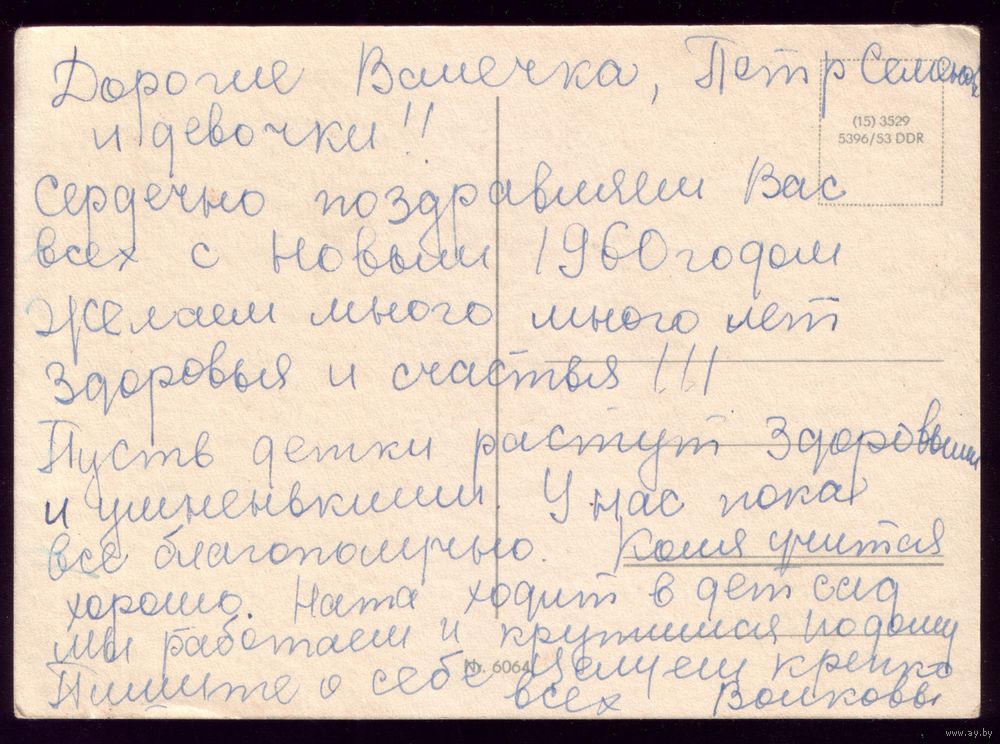 Дорогие Валечка, Петр Семенов
и девочки!!
(15) 3529
5396/53 DDR
Сердечно поздравляем Вас
всех с Новым 1960 годом
Желаем много много лет
Здоровья и счастья!!!
Пусть детки растут Здоровыми
и умненькими. У нас пока
все благополучно. Коля учится
хорошо. Ната ходит в дет сад
мы работаем и крутимся по дому
Nr. 6064
Пишите о себе Целуем крепко
всех Волковы
www.ay.by